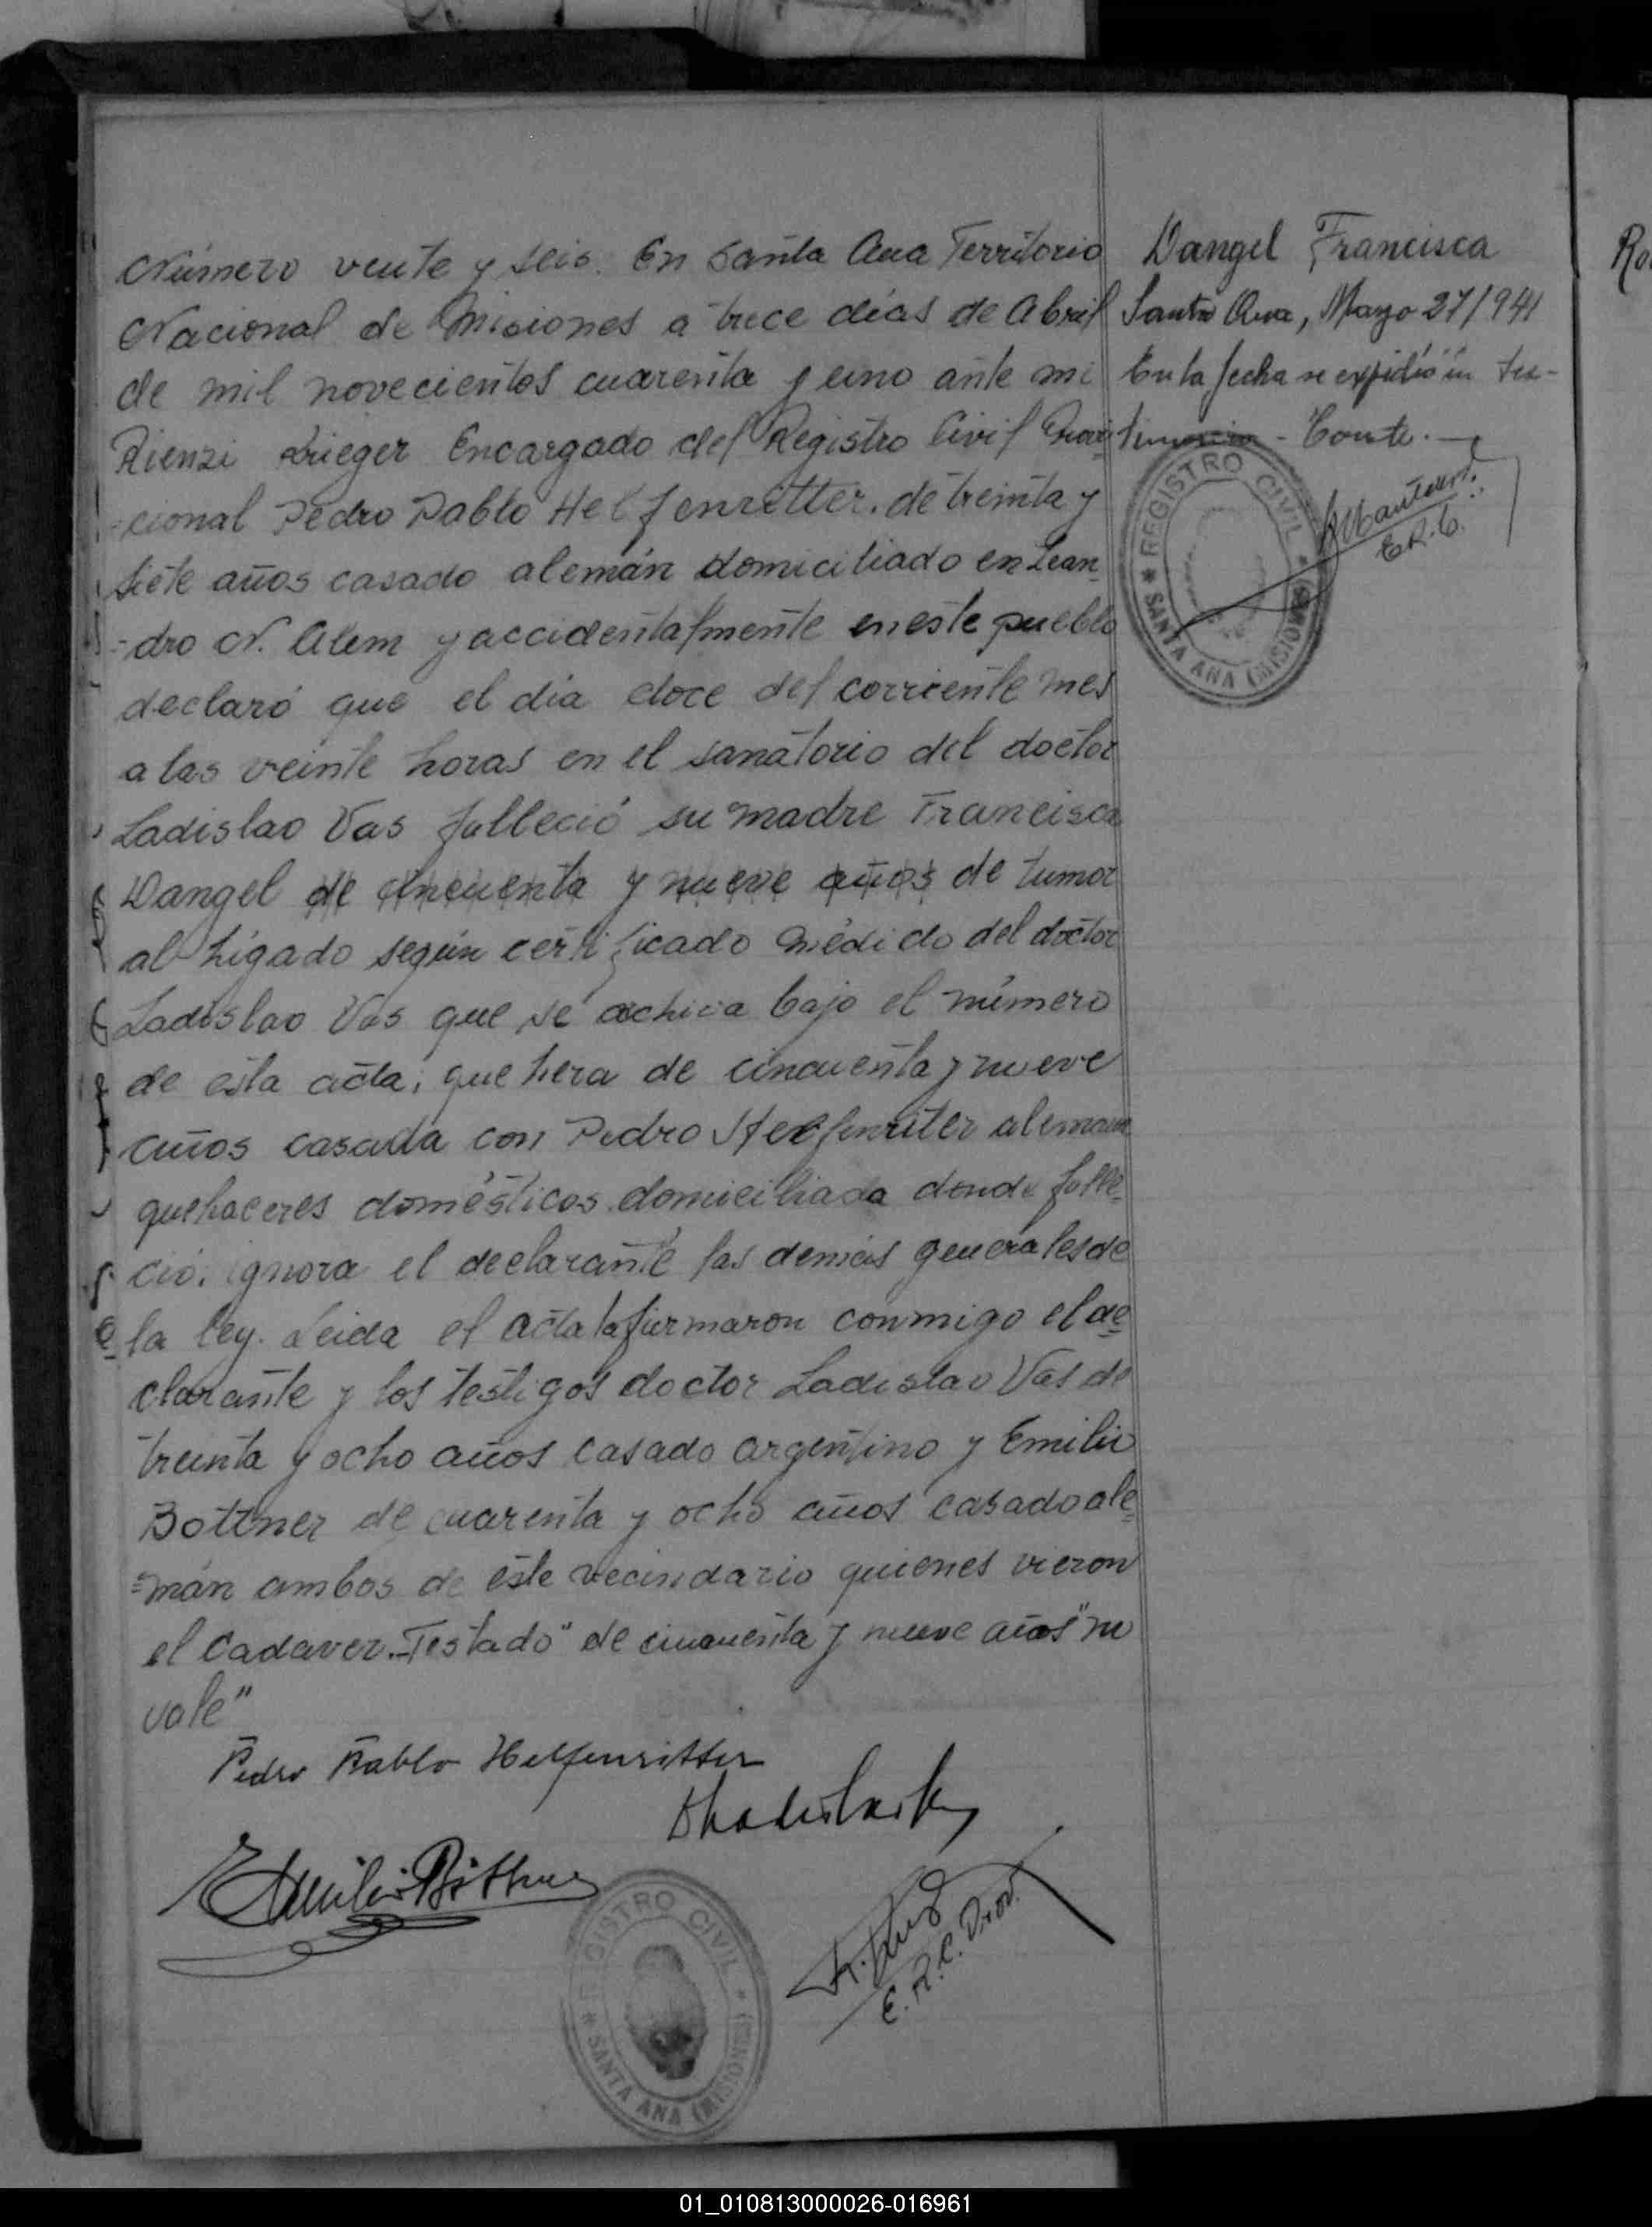 Número veute y seis. En Santa Ana Territorio
Nacional de Misiones a trece días de Abril
de mil novecientos cuarenta y uno ante mi
Rienzi Krieger Encargado del Registro Civil Provi
-cional Pedro Pablo Helfenritter. de treinta y
siete años casado alemán domiciliado en Lean
-dro N. Alem y accidentalmente en este pueblo
declaró que el día doce del corriente mes
a las veinte horas en el sanatorio del doctor
Ladislao Vas falleció su madre Francisca
Dangel de cincuenta y nueve años de tumor
al hígado según certificado médido del doctor
Ladislao Vas que se archiva bajo el número
de esta acta; que hera de cincuenta y nueve
años casada con Pedro Helfenriter alemana
quehaceres domésticos domiciliada donde falle
ció. ignora el declarante las demás generales de
la ley. Leida el acta la firmaron conmigo el de
clarante y los testigos doctor Ladislao Vas de
treinta y ocho años casado argentino y Emilio
Bottner de cuarenta y ocho años casado ale
=mán ambos de este vecindario quienes vieron
el Cadaver. Testado "de cincuenta y nueve años" no
vale"
Pedro Pablo Helfenritter
Emilio Böttner
E.R.C. Prov.
REGISTRO CIVIL
* SANTA ANA (MISIONES) *
Dangel Francisca
Santa Ana, Mayo 27/941
En la fecha se expidió un tes-
timonio - Conste.
E.R.C.
REGISTRO CIVIL
* SANTA ANA (MISIONES) *
01_010813000026-016961